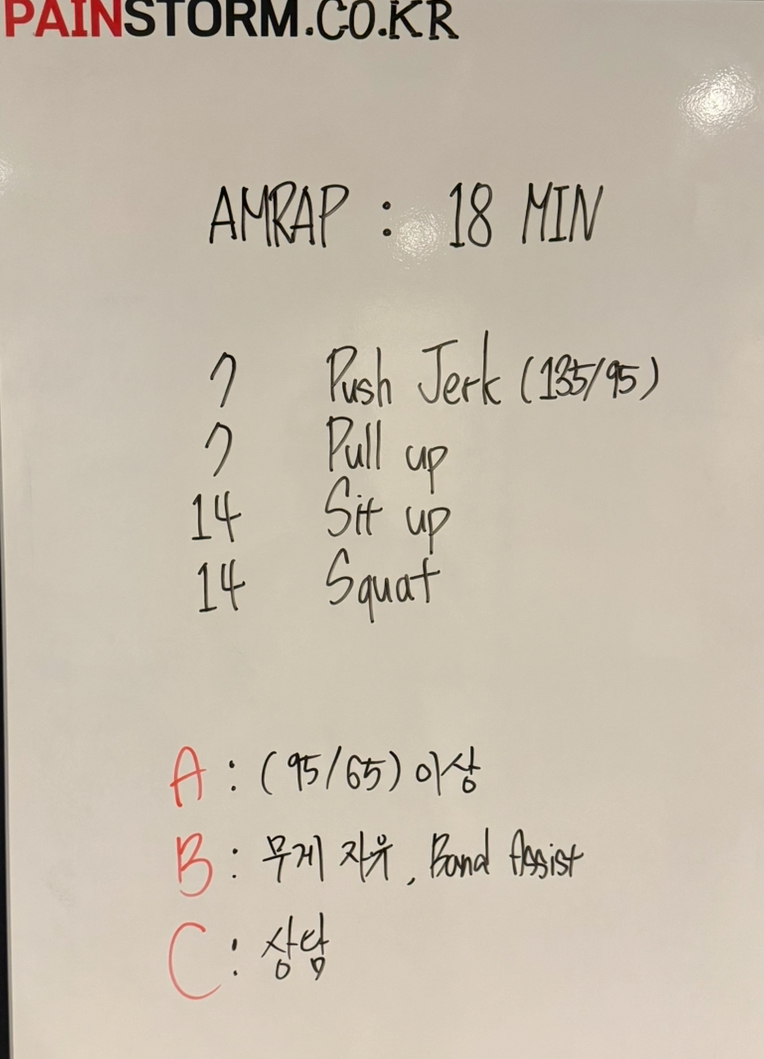 PAINSTORM.CO.KR
AMRAP : 18 MIN
7 Push Jerk (135/95)
7 Pull up
14 Sit up
14 Squat
A : (95/65) 이상
B : 무게 자유, Band Assist
C : 상담